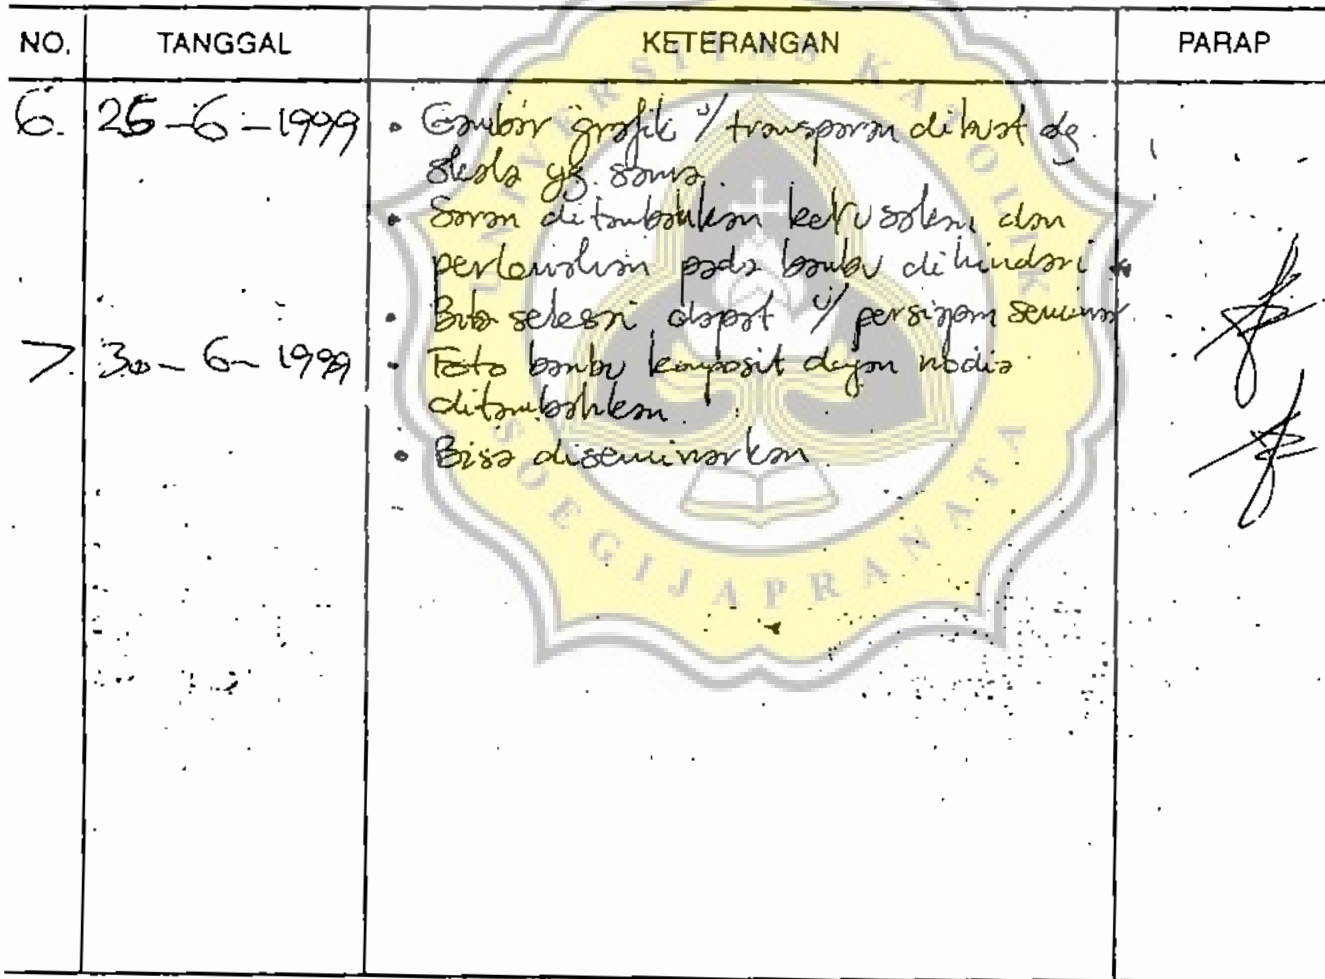 NO. TANGGAL KETERANGAN PARAP
6. 25-6-1999 • Gambar grafik u/ transparan dibuat dg.
skala yg. sama.
• Saran ditambahkan kerusakan dan
perlemahan pada bambu dihindari
• Bila selesai dapat u/ persiapan seminar
7. 30-6-1999 • Foto bambu komposit dengan nodia
ditambahkan.
• Bisa diseminarkan
UNIVERSITAS KATOLIK
SOEGIJAPRANATA